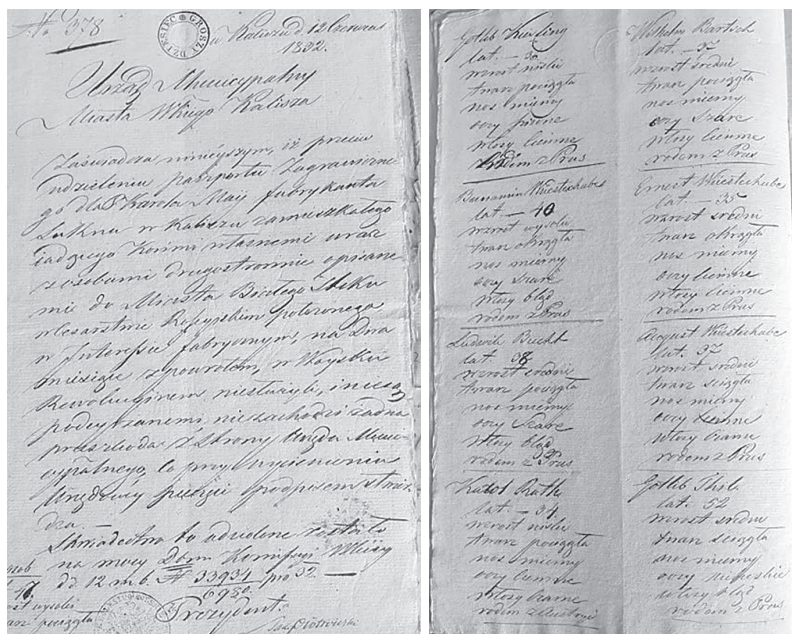 No 378
DZIESIĘC GROSZY
w Kaliszu d. 12 Czerwca
1832.
Urząd Municypalny
Miasta Wkiego Kalisza
Zaświadcza ninieyszym, iż przeciw
udzieleniu paszportu Zagraniczne-
go dla Karola May fabrykanta
Sukna w Kaliszu zamieszkałego
iadącego Końmi własnemi wraz
z osobami drugostronnie opisane
mi do Miasta Białego Stoku
w Cesarstwie Rossyiskim położonego
w Interesie fabrycznym, na Dwa
miesiące z powrotem, w Woysku
Rewolucyinem niesłużyli, i nie są
podeyrzanemi, nie zachodzi żadna
przeszkoda z Strony Urzędu Muni-
cypalnego, co przy wyciśnieniu
Urzędowey pieczęci podpisem stwier-
dza.
Świadectwo to udzielone zostało
na mocy Komissyi
dd 12 m. b. N 33934
6980
Prezydent
lat 30
wzrost niski
twarz pociągła
nos mierny
oczy piwne
włosy ciemne
rodem z Prus
lat 40
wzrost wysoki
twarz okrągła
nos mierny
oczy szare
włosy bląd
rodem z Prus
Ludwik Brecht
lat 38
wzrost średni
twarz pociągła
nos mierny
oczy szare
włosy bląd
rodem z Prus
lat 34
wzrost niski
twarz pociągła
nos mierny
oczy ciemne
włosy czarne
rodem z Austryi
Wilhelm Bartsch
lat 37
wzrost średni
twarz pociągła
nos mierny
oczy szare
włosy ciemne
rodem z Prus
Ernest
lat 35
wzrost średni
twarz okrągła
nos mierny
oczy ciemne
włosy ciemne
rodem z Prus
August
lat 37
wzrost średni
twarz ściągła
nos mierny
oczy ciemne
włosy czarne
rodem z Prus
Gotlib
lat 52
wzrost średni
twarz ściągła
nos mierny
oczy niebieskie
włosy bląd
rodem z Prus